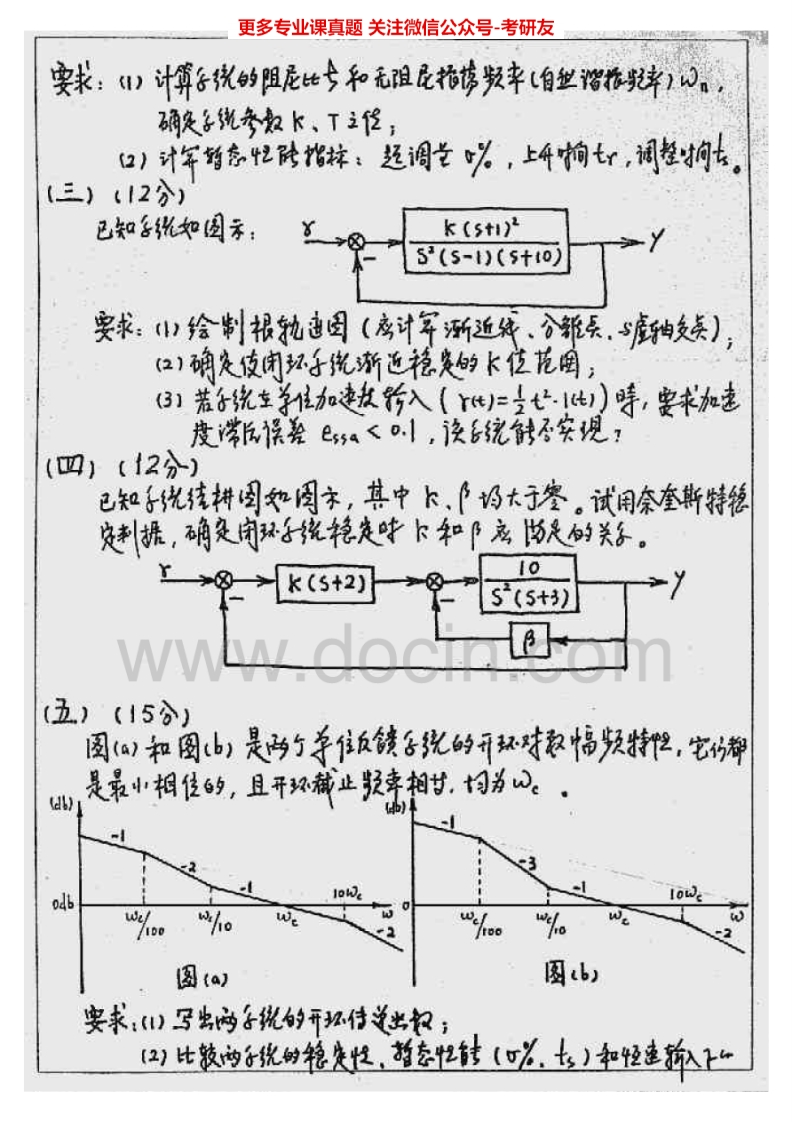 更多专业课真题 关注微信公众号-考研友
要求: (1) 计算系统的阻尼比ξ和无阻尼振荡频率(自然谐振频率)ωn,
确定系统参数K、T之值;
(2) 计算暂态性能指标: 超调量σ%, 上升时间tr, 调整时间ts。
(三) (12分)
已知系统如图示:
r
K(S+1)²
S²(S-1)(S+10)
y
−
要求: (1) 绘制根轨迹图 (应计算渐近线、分离点、与虚轴交点);
(2) 确定使闭环系统渐近稳定的K值范围;
(3) 若系统在单位加速度输入 (r(t)=½t²·1(t)) 时, 要求加速
度滞后误差 essa < 0.1, 该系统能否实现?
(四) (12分)
已知系统结构图如图示, 其中K、β均大于零。试用奈奎斯特稳
定判据, 确定闭环系统稳定时K和β应满足的关系。
r
K(S+2)
10
S²(S+3)
y
−
−
β
www.docin.com
(五) (15分)
图(a)和图(b)是两个单位反馈系统的开环对数幅频特性, 它们都
是最小相位的, 且开环截止频率相等, 均为ωc。
(db)
-1
-2
-1
10ωc
0db
ωc/100
ωc/10
ωc
ω
-2
图(a)
(db)
-1
-3
-1
10ωc
0
ωc/100
ωc/10
ωc
ω
-2
图(b)
要求: (1) 写出两系统的开环传递函数;
(2) 比较两系统的稳定性、暂态性能 (σ%、ts) 和恒速输入下